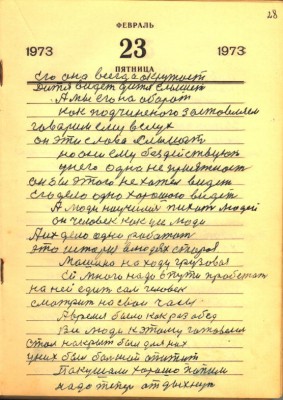 28
ФЕВРАЛЬ
1973 23 1973
ПЯТНИЦА
его она всегда окружает
Дитя видет дитя слышет
А мы его на оборот
как подчиненого заставляем
гаварим ему вслух
он эти слова слышит
но они ему бездействуют
у него одна не приятность
он бы этого не хател видет
его дело одно хорошое видет
А люди научилис пихат людей
он человек как усе люди
Аих дело одно работат
это история людей старая
Машина на ходу грузовая
Ей много надо в пути пробежат
на ней едит сам человек
сматрит на свои часы
А время было как раз обед
Все люди к этаму гатовилис
стол накрыт был для них
у них был болшой апетит
Пакушали хорошо попили
надо тепер отдыхнут